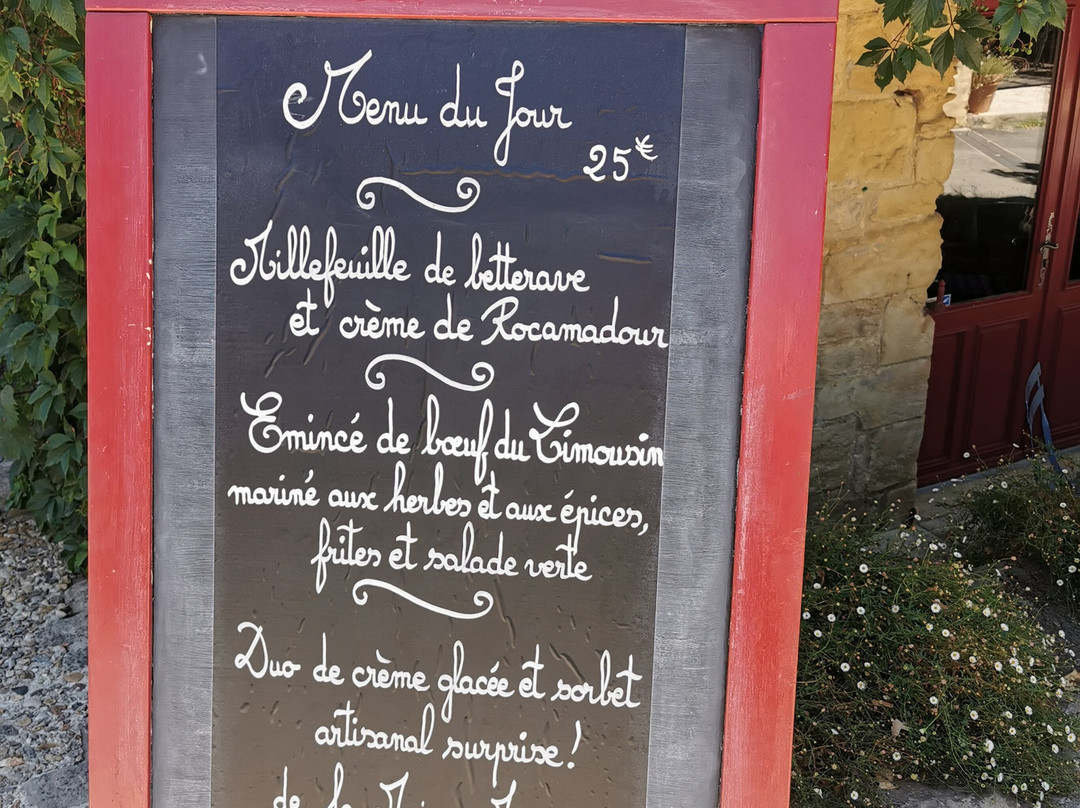 Menu du Jour
25€
Millefeuille de betterave
et crème de Rocamadour
Emincé de bœuf du Limousin
mariné aux herbes et aux épices,
frites et salade verte
Duo de crème glacée et sorbet
artisanal surprise !
de la